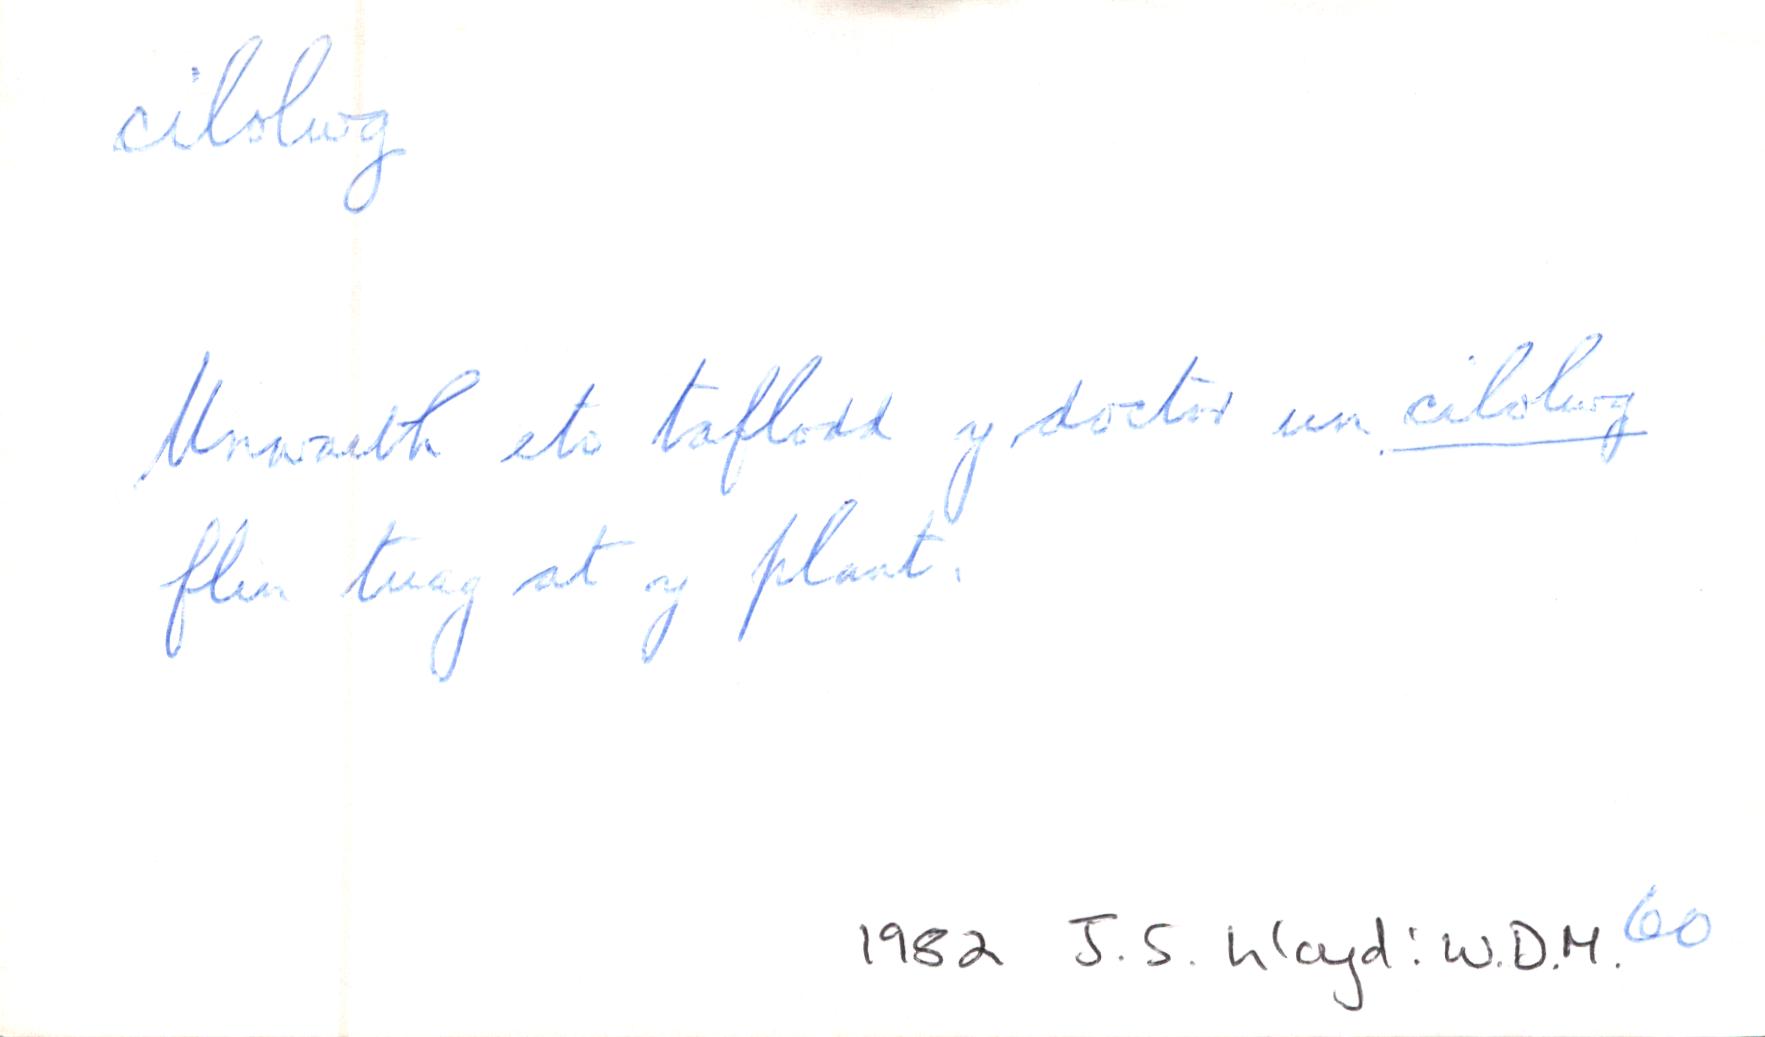 cilolwg
Unwaith eto taflodd y doctor un cilolwg
flin tuag at y plant.
1982 J. S. Lloyd: W.D.M. 60